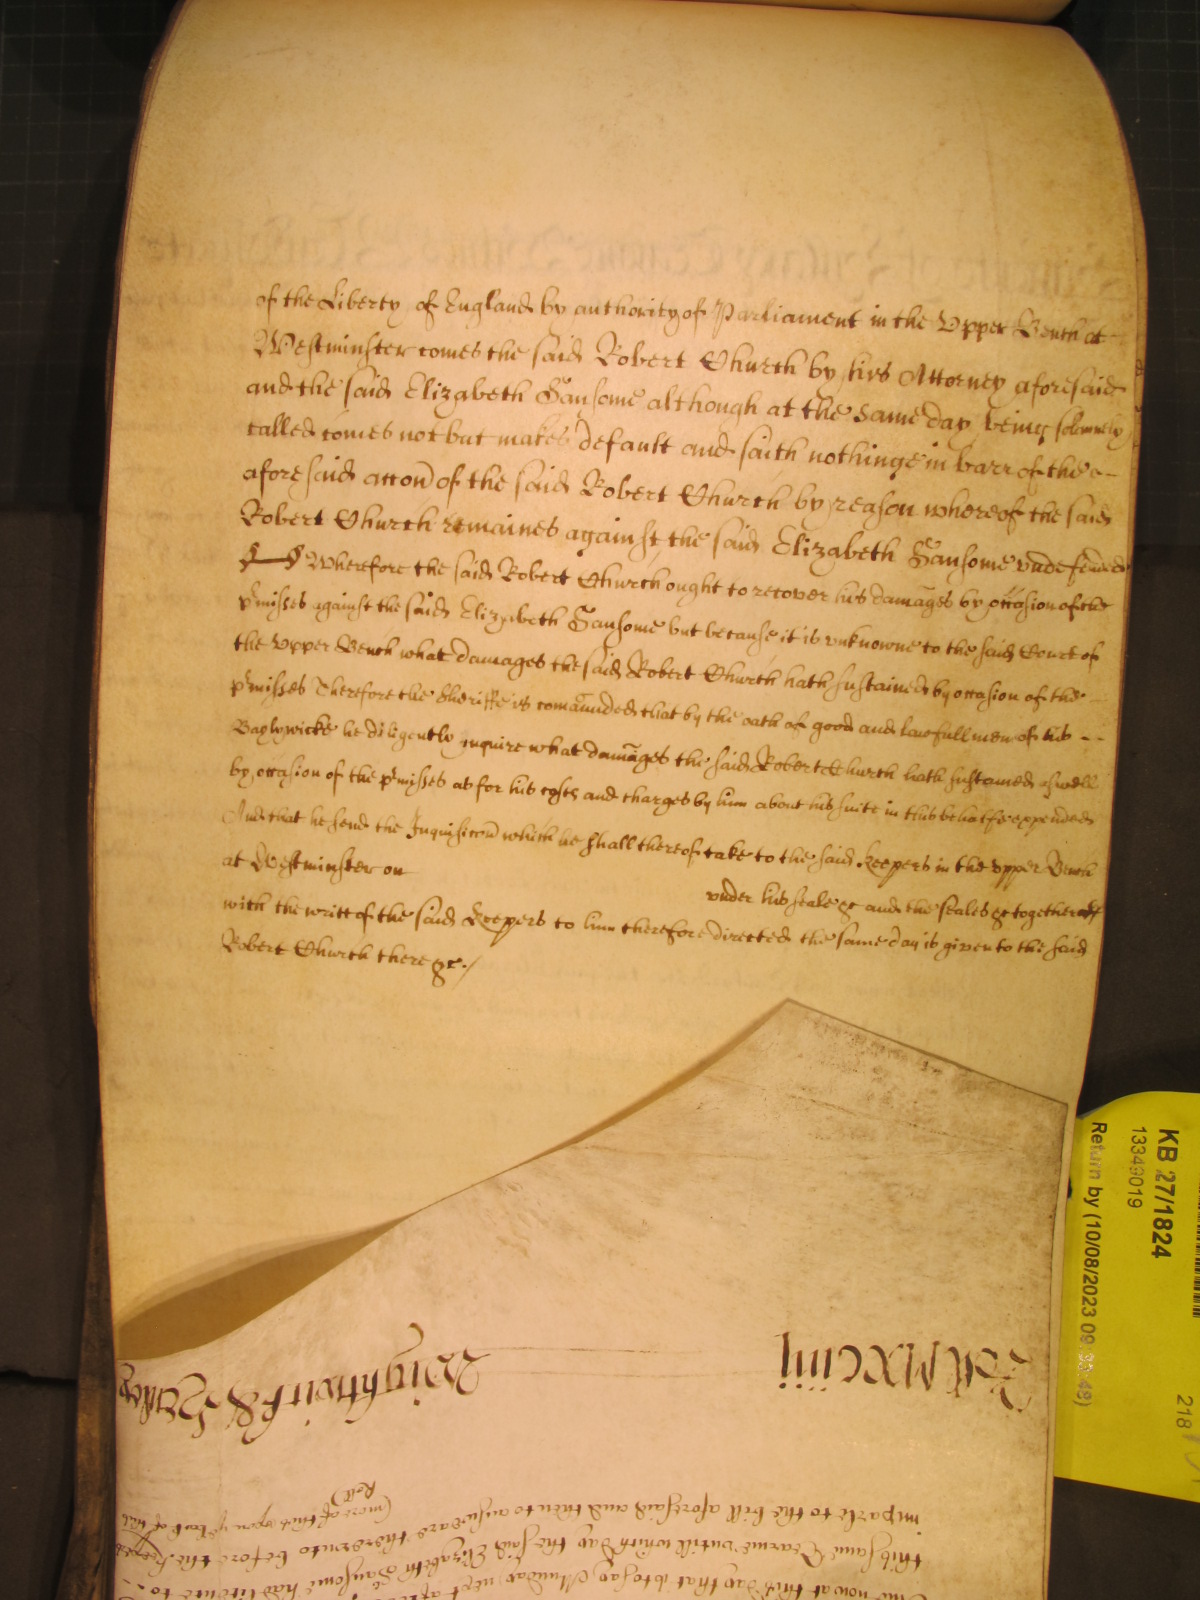 of the Liberty of England by authority of Parliament in the Upper Bench at
Westminster comes the said Robert Church by his Attorney aforesaid
and the said Elizabeth Sansome although at the same day being solemnely
called comes not but makes default and saith nothinge in barr of the
aforesaid accon of the said Robert Church by reason whereof the said
Robert Church remaines against the said Elizabeth Sansome undefended
Wherefore the said Robert Church ought to recover his damages by occasion of the
pmisses against the said Elizabeth Sansome but because it is unknowne to the said Court of
the Upper Bench what damages the said Robert Church hath sustained by occasion of the
pmisses Therefore the Sheriffe is comaunded that by the oath of good and lawfull men of his --
Baylywicke he diligently inquire what damages the said Robert Church hath sustained aswell
by occasion of the pmisses as for his costs and charges by him about his suite in this behalfe expended
And that he send the Inquisicon which he shall thereof take to the said keepers in the upper Bench
at Westminster on under his seale &c and the seales &c together
with the writt of the said Keepers to him therefore directed the same day is given to the said
Robert Church there &c./
Rott MXCiiii
Wightwick &
And now at this day that is to say Munday next after
this same Tearme untill which day the said Elizabeth Sansome had licence to
imparle to the bill aforesaid and then to answeare thereunto before the Keepers
more of this upon the back of this
Roll
KB 27/1824
13349019
Return by (10/08/2023 09:
218